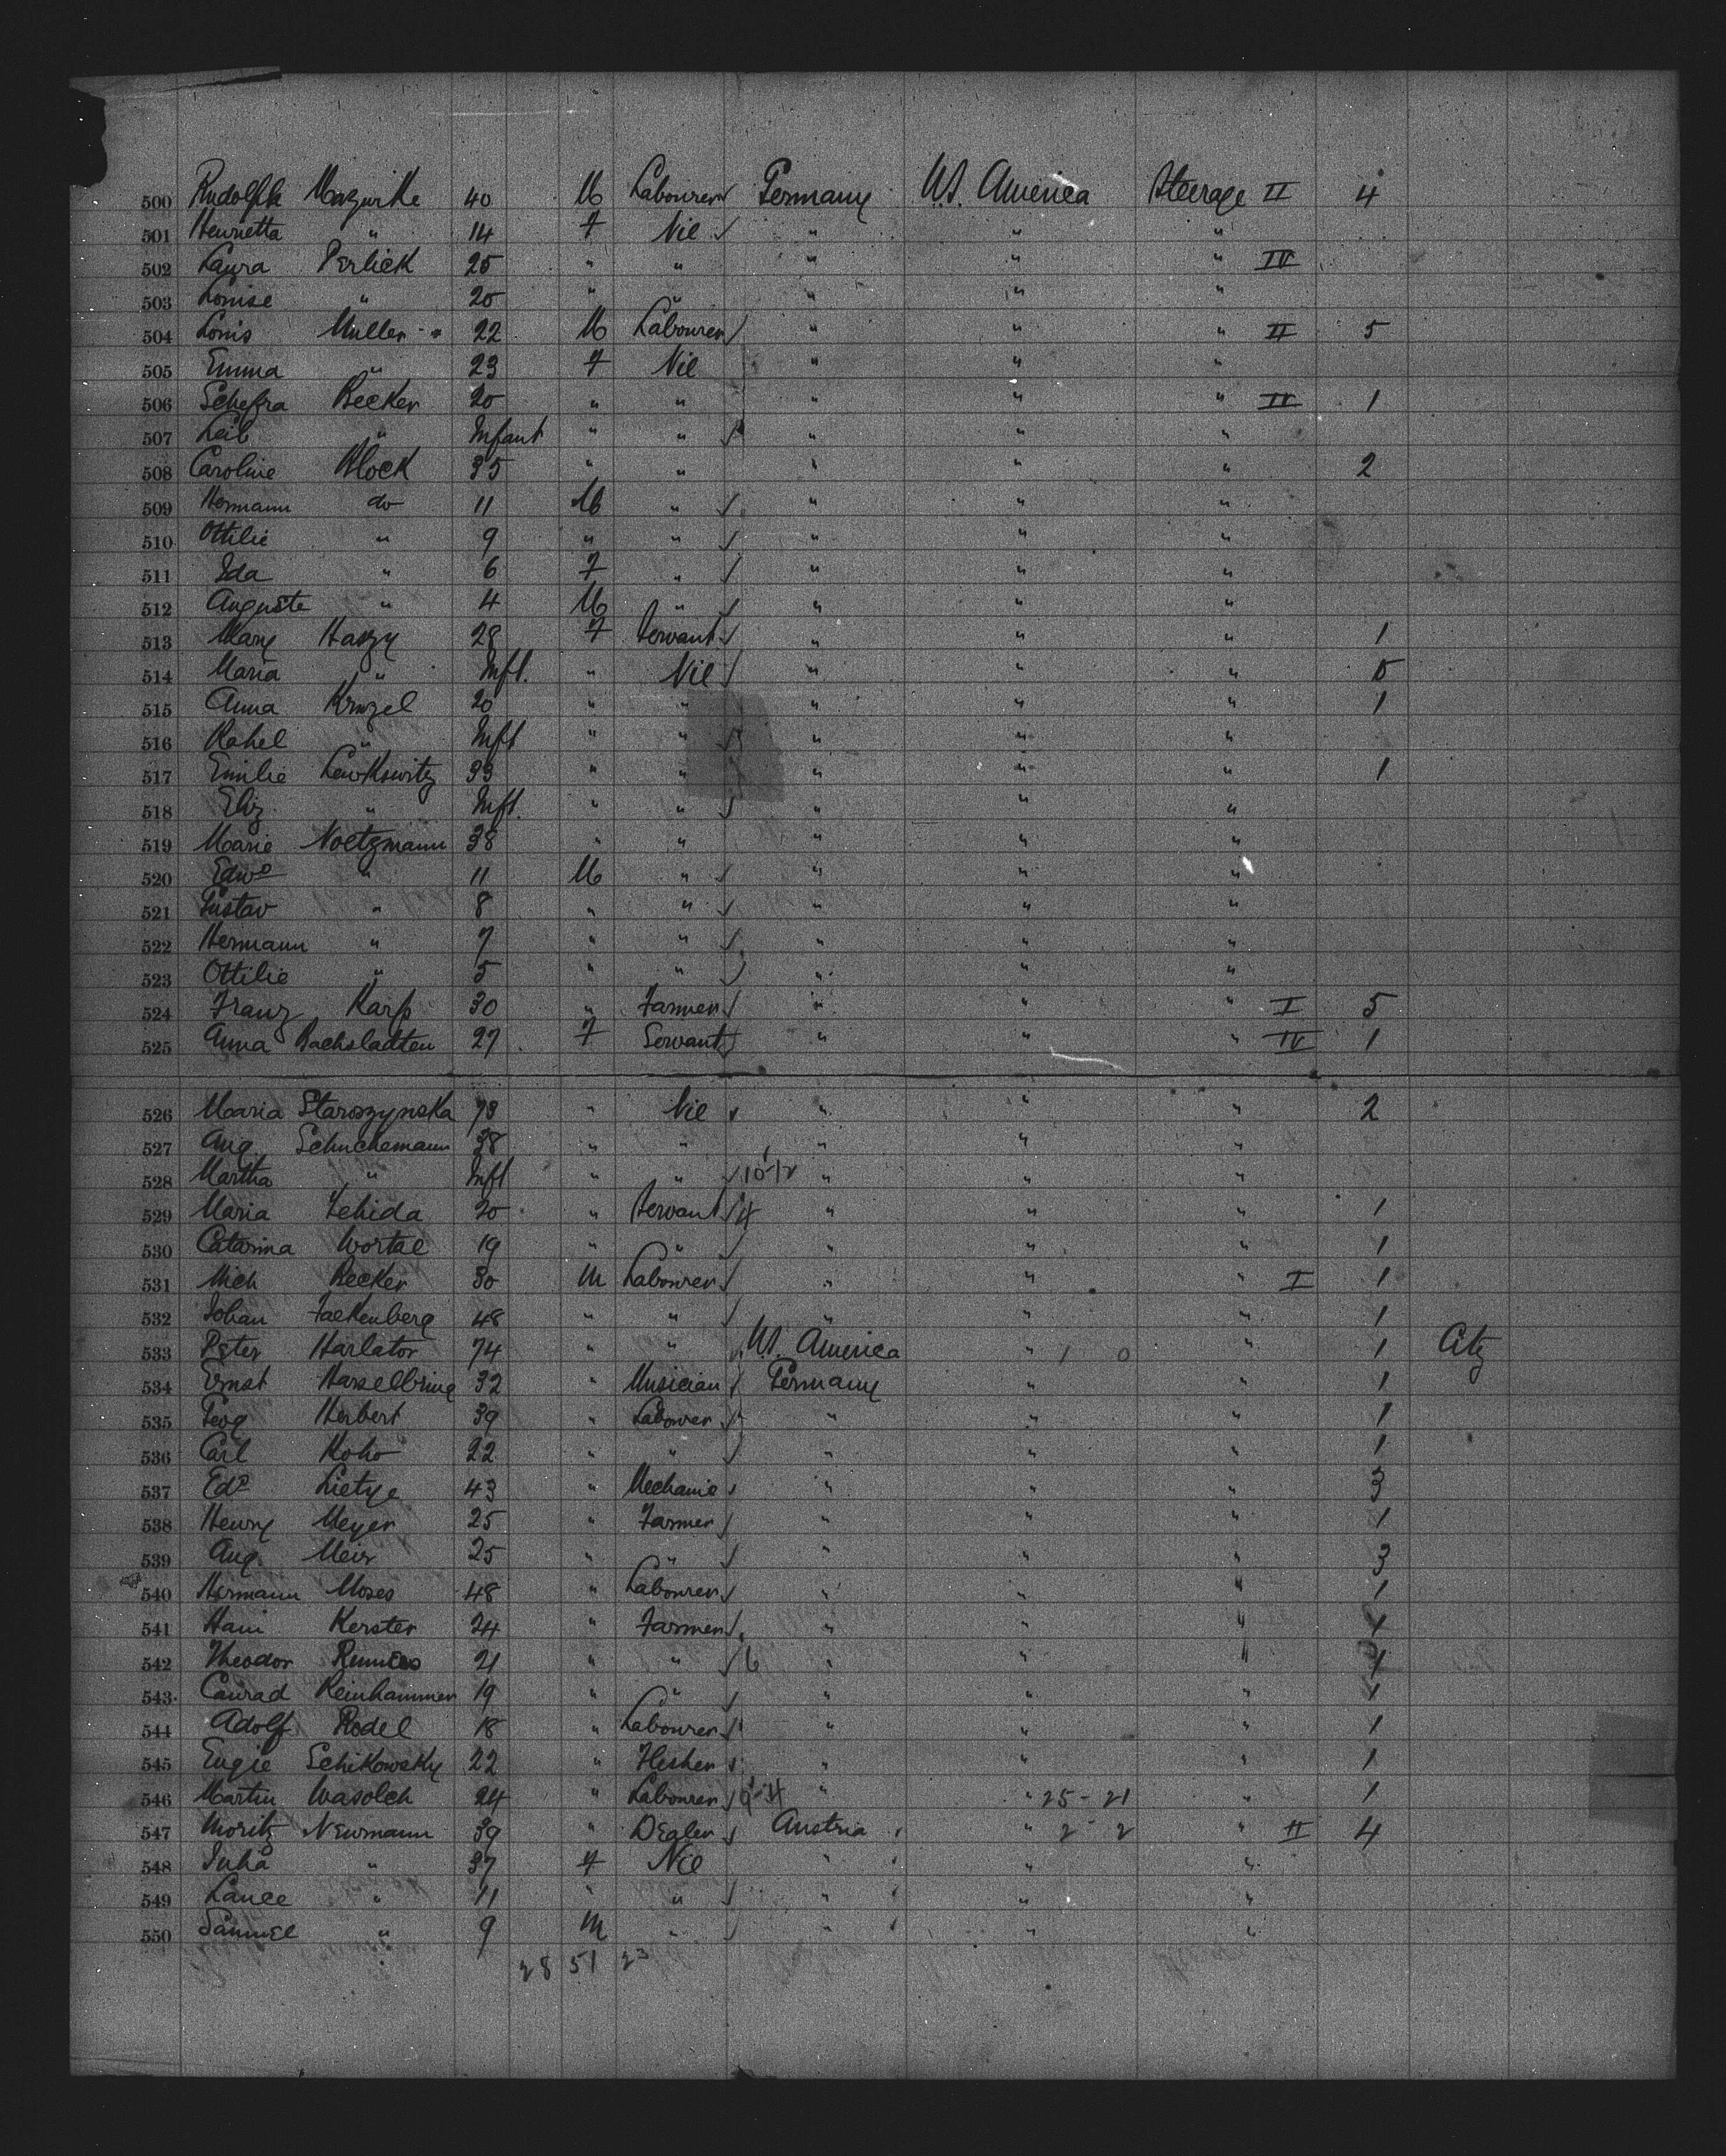 500 Rudolph Mazurke 40 M Labourer Germany U.S. America Steerage II 4
501 Henrietta " 14 F Nil " " "
502 Laura Perlick 25 " " " " " IV
503 Louise " 20 " " " " "
504 Louis Muller " 22 M Labourer " " " II 5
505 Emma " 23 F Nil " " "
506 Schefra Becker 20 " " " " " IV 1
507 Leib " Infant " " " " "
508 Caroline Block 35 " " " " " 2
509 Hermann do 11 M " " " "
510 Ottilie " 9 " " " " "
511 Ida " 6 F " " " "
512 Auguste " 4 M " " " "
513 Mary Haszy 28 F Servant " " " 1
514 Maria " Inft. " Nil " " "
515 Anna Kruzel 20 " " " " " 1
516 Rahel " Inft " " " " "
517 Emilie Lewkowitz 33 " " " " " 1
518 Eliz " Inft. " " " " "
519 Marie Noetzmann 38 " " " " "
520 Edwd " 11 M " " " "
521 Gustav " 8 " " " " "
522 Hermann " 7 " " " " "
523 Ottilie " 5 " " " " "
524 Franz Karp 30 " Farmer " " " I 5
525 Anna Bachsladten 27 F Servant " " " IV 1
526 Maria Staroszynska 73 " Nil " " " 2
527 Aug Schuchemann 38 " " " " "
528 Martha " Inft " " 10-12 " " "
529 Maria Zehida 20 " Servant 4 " " " 1
530 Catarina Wortal 19 " " " " " 1
531 Mich Becker 30 M Labourer " " " I 1
532 Johan Falkenberg 48 " " " " " 1
533 Peter Harlator 74 " " U.S. America " 1 0 " 1 Citz
534 Ernst Hasselbring 32 " Musician Germany " " 1
535 Geog Herbert 39 " Labourer " " " 1
536 Carl Koho 22 " " " " " 1
537 Edd Lietze 43 " Mechanic " " " 3
538 Henry Meyer 25 " Farmer " " " 1
539 Aug. Meir 25 " " " " " 3
540 Hermann Moses 48 " Labourer " " " 1
541 Hain Kerster 24 " Farmer " " " 1
542 Theodor 21 " " 6 " " " 1
543 Conrad Reinhammer 19 " " " " " 1
544 Adolf Rodel 18 " Labourer " " " 1
545 Eugie Schikowsky 22 " " " " 1
546 Martin Wasolch 24 " Labourer 9-4 " " 25-21 " 1
547 Moritz Newmann 39 " Dealer Austria " 2-2 " II 4
548 " 37 F Nil " " "
549 " 11 " " " " "
550 Samuel " 9 M " " " "
28 51 23